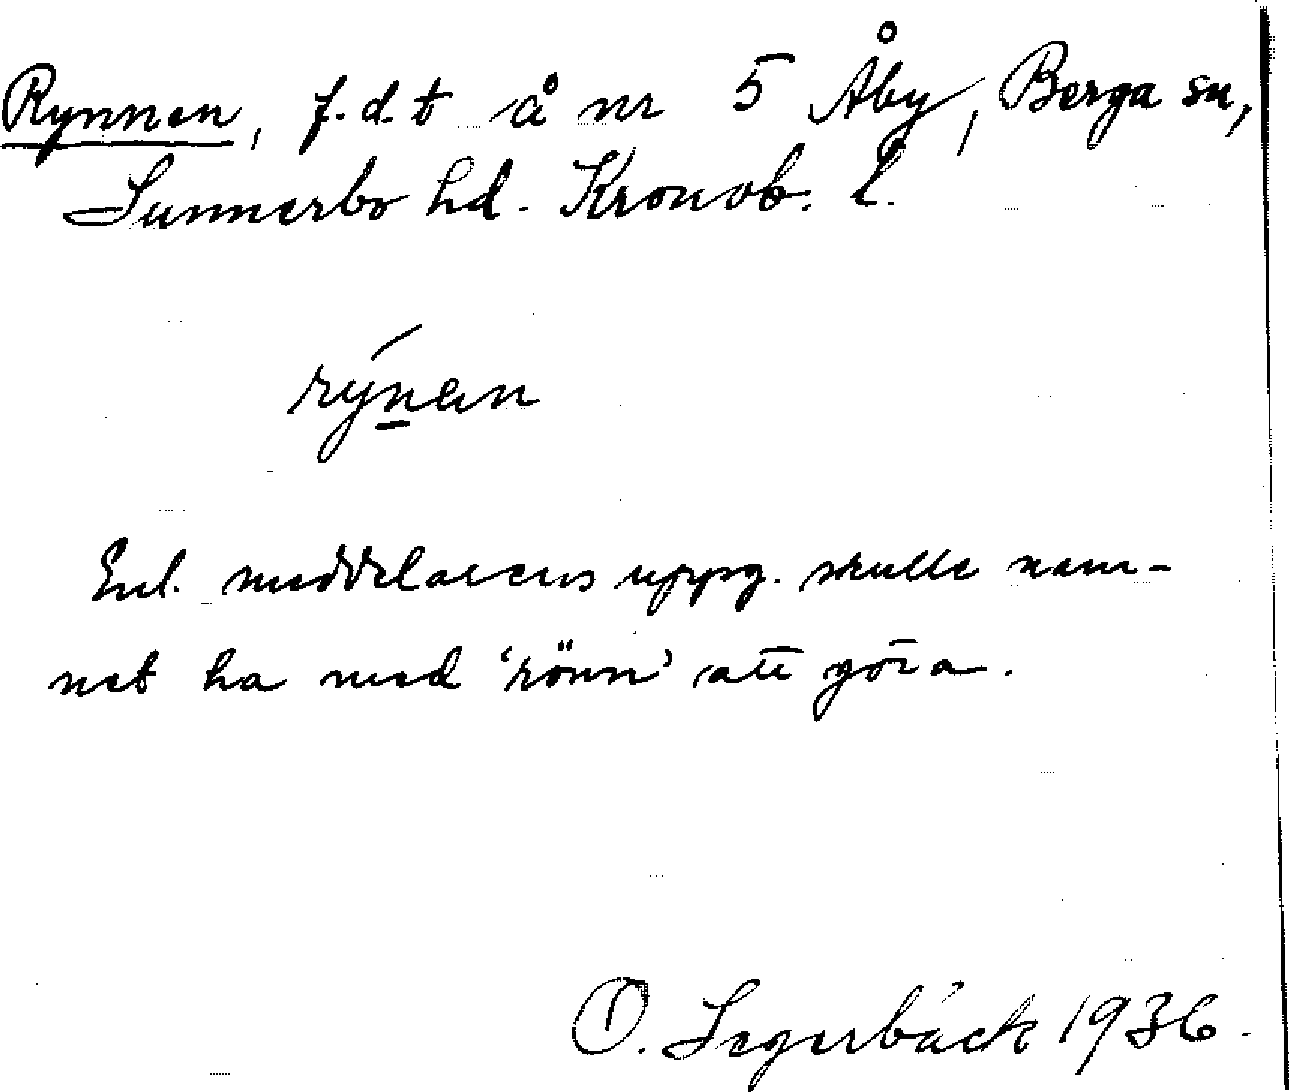 Rynnen, f.d.t å nr 5 Åby, Berga sn,
Sunnerbo hd. Kronob. l.
rýnen
Enl. meddelarens uppg. skulle nam-
net ha med 'rönn' att göra.
O. Segerbäck 1936.